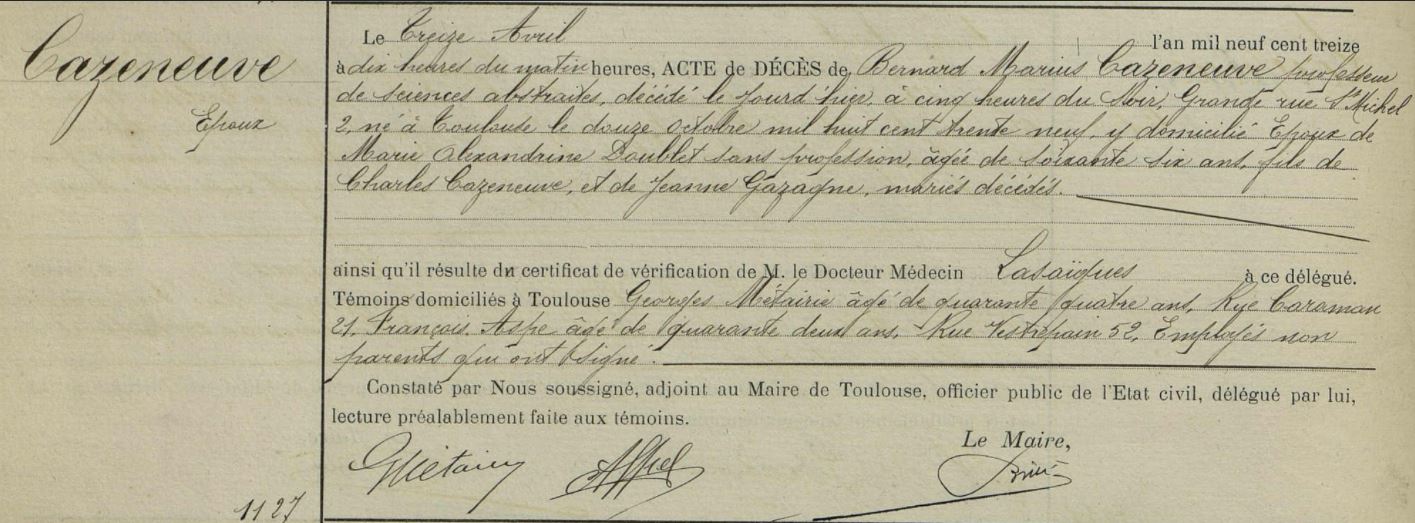 Cazeneuve
Epoux
Le Treize Avril l'an mil neuf cent treize
à dix heures du matin heures, ACTE de DÉCÈS de Bernard Marius Cazeneuve professeur
de Sciences abstraites, décédé le jourd'hier, à cinq heures du Soir, Grande rue St Michel
2, né à Toulouse le douze Octobre mil huit cent trente neuf, y domicilié Epoux de
Marie Alexandrine Doublet sans profession, âgée de soixante six ans, fils de
Charles Cazeneuve, et de Jeanne Gazagne, mariés décédés.
ainsi qu'il résulte du certificat de vérification de M. le Docteur Médecin Lasaïgues à ce délégué.
Témoins domiciliés à Toulouse Georges Métairie âgé de quarante quatre ans, Rue Caraman
21, François Aspe âgé de quarante deux ans, Rue Vestrepain 52, Employés non
parents qui ont signé.
Constaté par Nous soussigné, adjoint au Maire de Toulouse, officier public de l'Etat civil, délégué par lui,
lecture préalablement faite aux témoins.
Le Maire,
GMétairie
1127